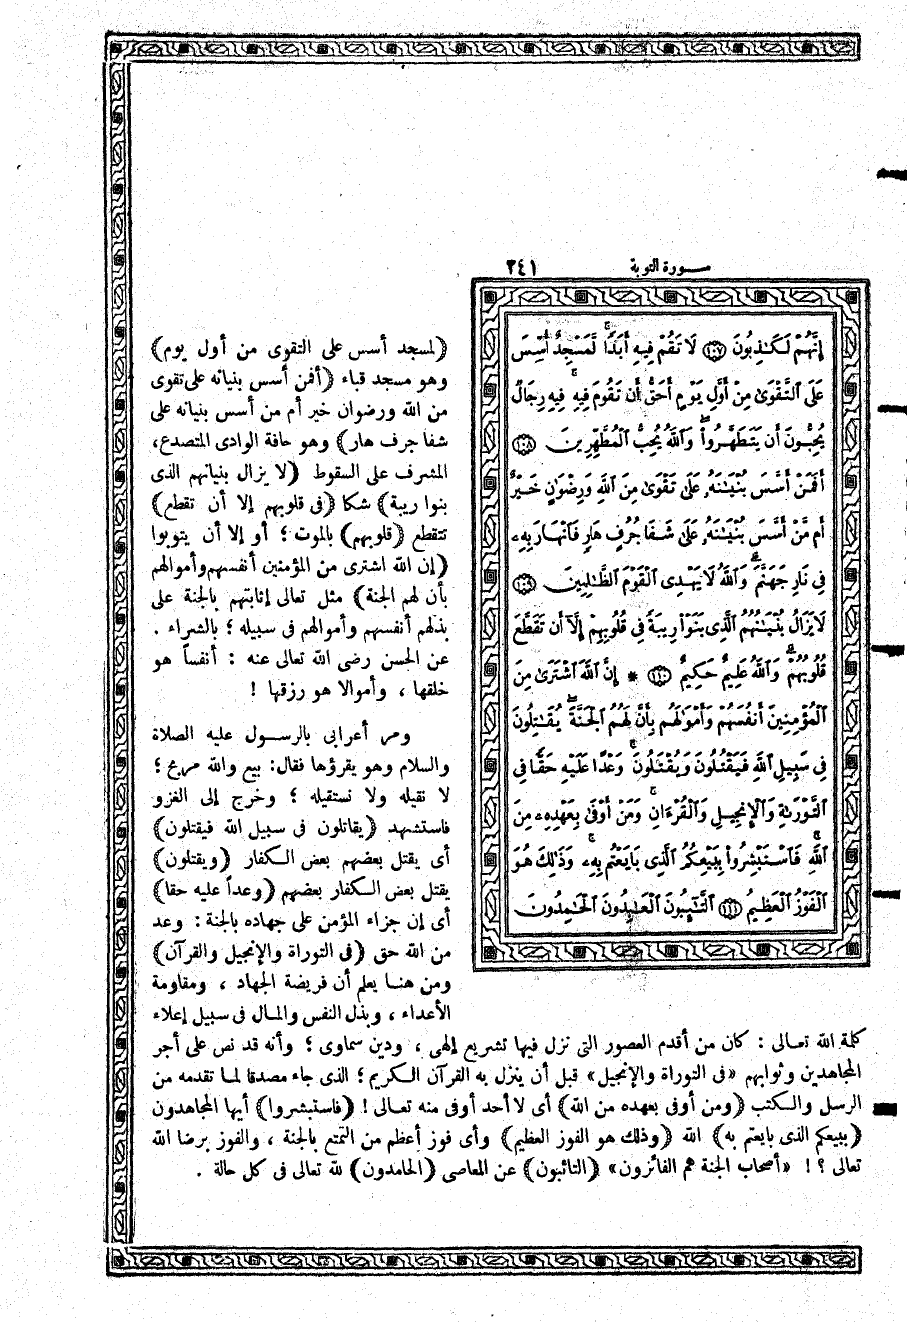 سورة التوبة ٢٤١
إِنَّهُمْ لَكَٰذِبُونَ ۝١٠٧ لَا تَقُمْ فِيهِ أَبَدًا ۚ لَّمَسْجِدٌ أُسِّسَ
عَلَى ٱلتَّقْوَىٰ مِنْ أَوَّلِ يَوْمٍ أَحَقُّ أَن تَقُومَ فِيهِ ۚ فِيهِ رِجَالٌ
يُحِبُّونَ أَن يَتَطَهَّرُوا۟ ۚ وَٱللَّهُ يُحِبُّ ٱلْمُطَّهِّرِينَ ۝١٠٨
أَفَمَنْ أَسَّسَ بُنْيَٰنَهُۥ عَلَىٰ تَقْوَىٰ مِنَ ٱللَّهِ وَرِضْوَٰنٍ خَيْرٌ
أَم مَّنْ أَسَّسَ بُنْيَٰنَهُۥ عَلَىٰ شَفَا جُرُفٍ هَارٍ فَٱنْهَارَ بِهِۦ
فِى نَارِ جَهَنَّمَ ۗ وَٱللَّهُ لَا يَهْدِى ٱلْقَوْمَ ٱلظَّٰلِمِينَ ۝١٠٩
لَا يَزَالُ بُنْيَٰنُهُمُ ٱلَّذِى بَنَوْا۟ رِيبَةً فِى قُلُوبِهِمْ إِلَّآ أَن تَقَطَّعَ
قُلُوبُهُمْ ۗ وَٱللَّهُ عَلِيمٌ حَكِيمٌ ۝١١٠ * إِنَّ ٱللَّهَ ٱشْتَرَىٰ مِنَ
ٱلْمُؤْمِنِينَ أَنفُسَهُمْ وَأَمْوَٰلَهُم بِأَنَّ لَهُمُ ٱلْجَنَّةَ ۚ يُقَٰتِلُونَ
فِى سَبِيلِ ٱللَّهِ فَيَقْتُلُونَ وَيُقْتَلُونَ ۖ وَعْدًا عَلَيْهِ حَقًّا فِى
ٱلتَّوْرَىٰةِ وَٱلْإِنجِيلِ وَٱلْقُرْءَانِ ۚ وَمَنْ أَوْفَىٰ بِعَهْدِهِۦ مِنَ
ٱللَّهِ ۚ فَٱسْتَبْشِرُوا۟ بِبَيْعِكُمُ ٱلَّذِى بَايَعْتُم بِهِۦ ۚ وَذَٰلِكَ هُوَ
ٱلْفَوْزُ ٱلْعَظِيمُ ۝١١١ ٱلتَّٰٓئِبُونَ ٱلْعَٰبِدُونَ ٱلْحَٰمِدُونَ
(لمسجد أسس على التقوى من أول يوم)
وهو مسجد قباء (أفمن أسس بنيانه على تقوى
من الله ورضوان خير أم من أسس بنيانه على
شفا جرف هار) وهو حافة الوادى المتصدع،
المشرف على السقوط (لا يزال بنيانهم الذى
بنوا ريبة) شكا (فى قلوبهم إلا أن تقطع)
تتقطع (قلوبهم) بالموت؛ أو إلا أن يتوبوا
(إن الله اشترى من المؤمنين أنفسهم وأموالهم
بأن لهم الجنة) مثل تعالى إثابتهم بالجنة على
بذلهم أنفسهم وأموالهم فى سبيله؛ بالشراء .
عن الحسن رضى الله تعالى عنه : أنفساً هو
خلقها ، وأموالا هو رزقها !
ومر أعرابى بالرسول عليه الصلاة
والسلام وهو يقرؤها فقال: بيع والله مربح ؛
لا نقيله ولا نستقيله ؛ وخرج إلى الغزو
فاستشهد (يقاتلون فى سبيل الله فيقتلون)
أى يقتل بعضهم بعض الكفار (ويقتلون)
يقتل بعض الكفار بعضهم (وعداً عليه حقا)
أى إن جزاء المؤمن على جهاده بالجنة : وعد
من الله حق (فى التوراة والإنجيل والقرآن)
ومن هنا يعلم أن فريضة الجهاد ، ومقاومة
الأعداء ، وبذل النفس والمال فى سبيل إعلاء
كلمة الله تعالى : كان من أقدم العصور التى نزل فيها تشريع إلهى ، ودين سماوى ؛ وأنه قد نص على أجر
المجاهدين وثوابهم «فى التوراة والإنجيل» قبل أن ينزل به القرآن الكريم؛ الذى جاء مصدقا لما تقدمه من
الرسل والكتب (ومن أوفى بعهده من الله) أى لا أحد أوفى منه تعالى ! (فاستبشروا) أيها المجاهدون
(ببيعكم الذى بايعتم به) الله (وذلك هو الفوز العظيم) وأى فوز أعظم من التمتع بالجنة ، والفوز برضا الله
تعالى ؟ ! «أصحاب الجنة هم الفائزون» (التائبون) عن المعاصى (الحامدون) لله تعالى فى كل حالة .